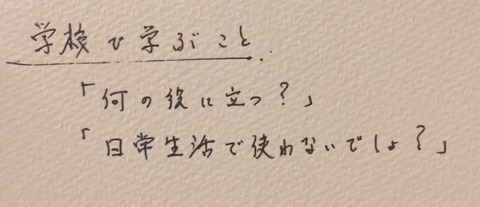 学校で学ぶこと..
「何の役に立つ？」
「日常生活で使わないでしょ？」